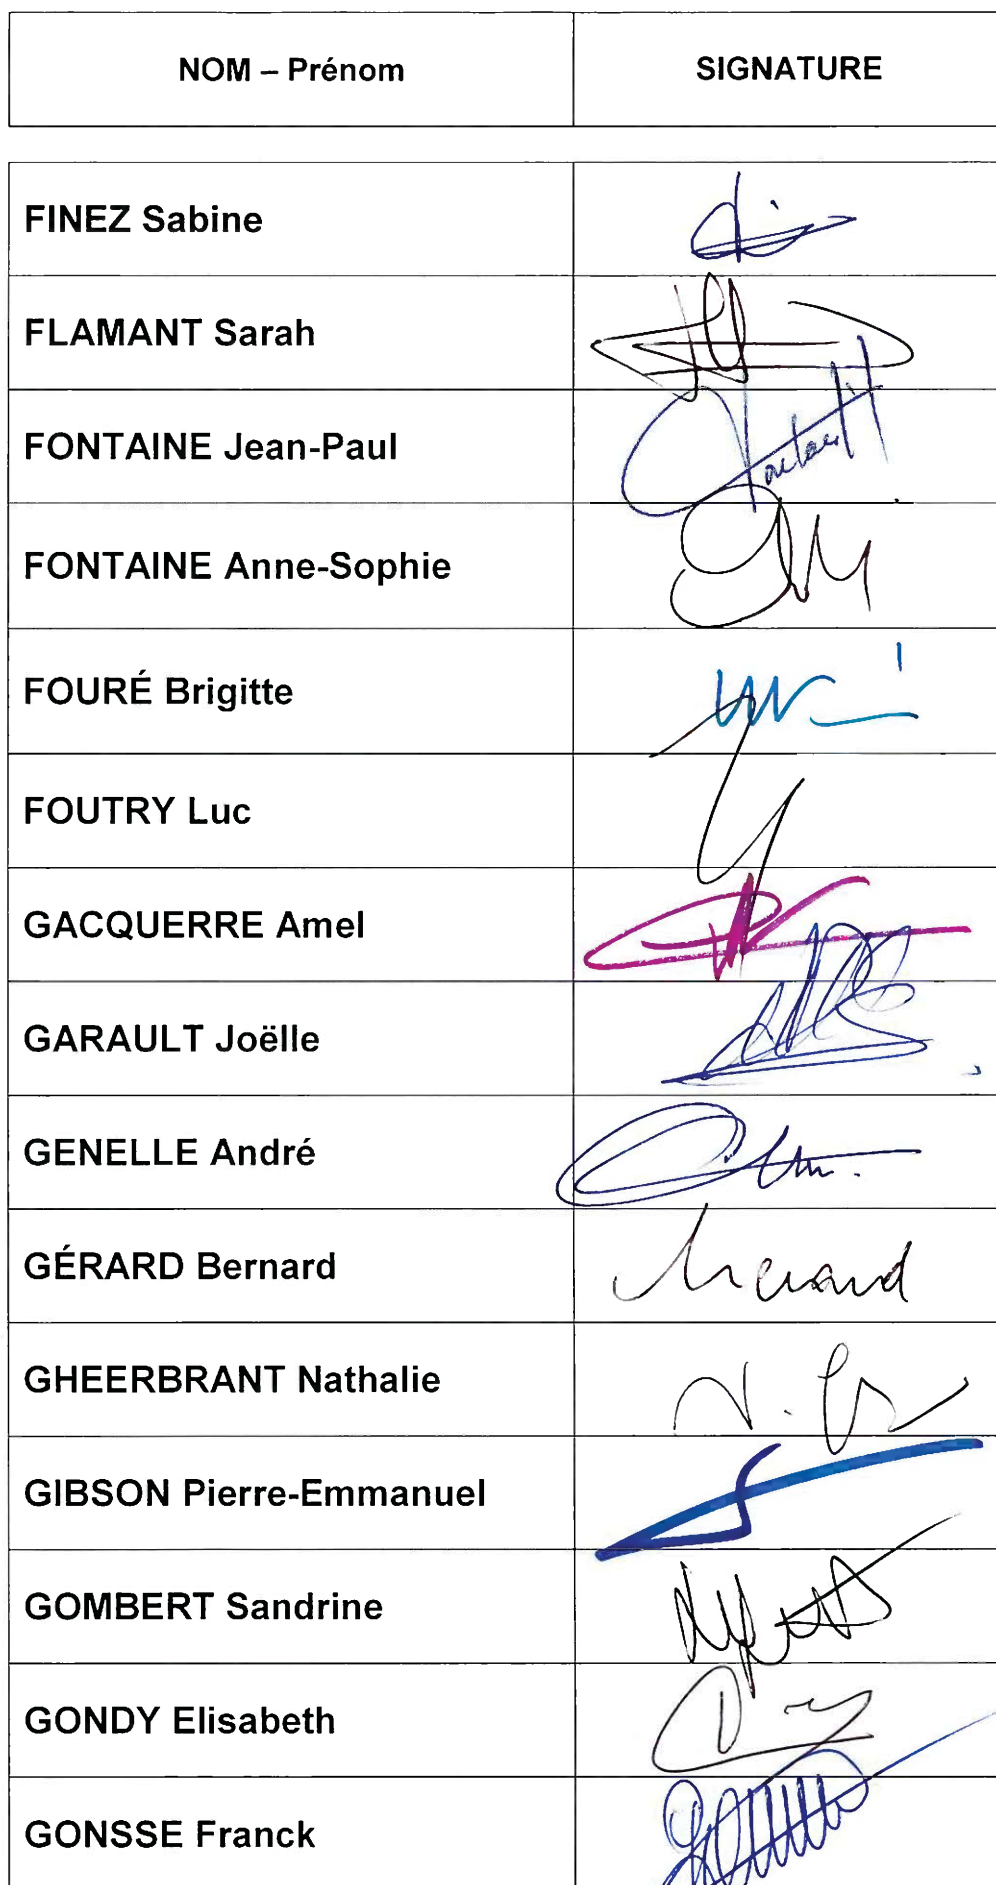 NOM – Prénom SIGNATURE
FINEZ Sabine
FLAMANT Sarah
FONTAINE Jean-Paul
FONTAINE Anne-Sophie
FOURÉ Brigitte
FOUTRY Luc
GACQUERRE Amel
GARAULT Joëlle
GENELLE André
GÉRARD Bernard
GHEERBRANT Nathalie
GIBSON Pierre-Emmanuel
GOMBERT Sandrine
GONDY Elisabeth
GONSSE Franck